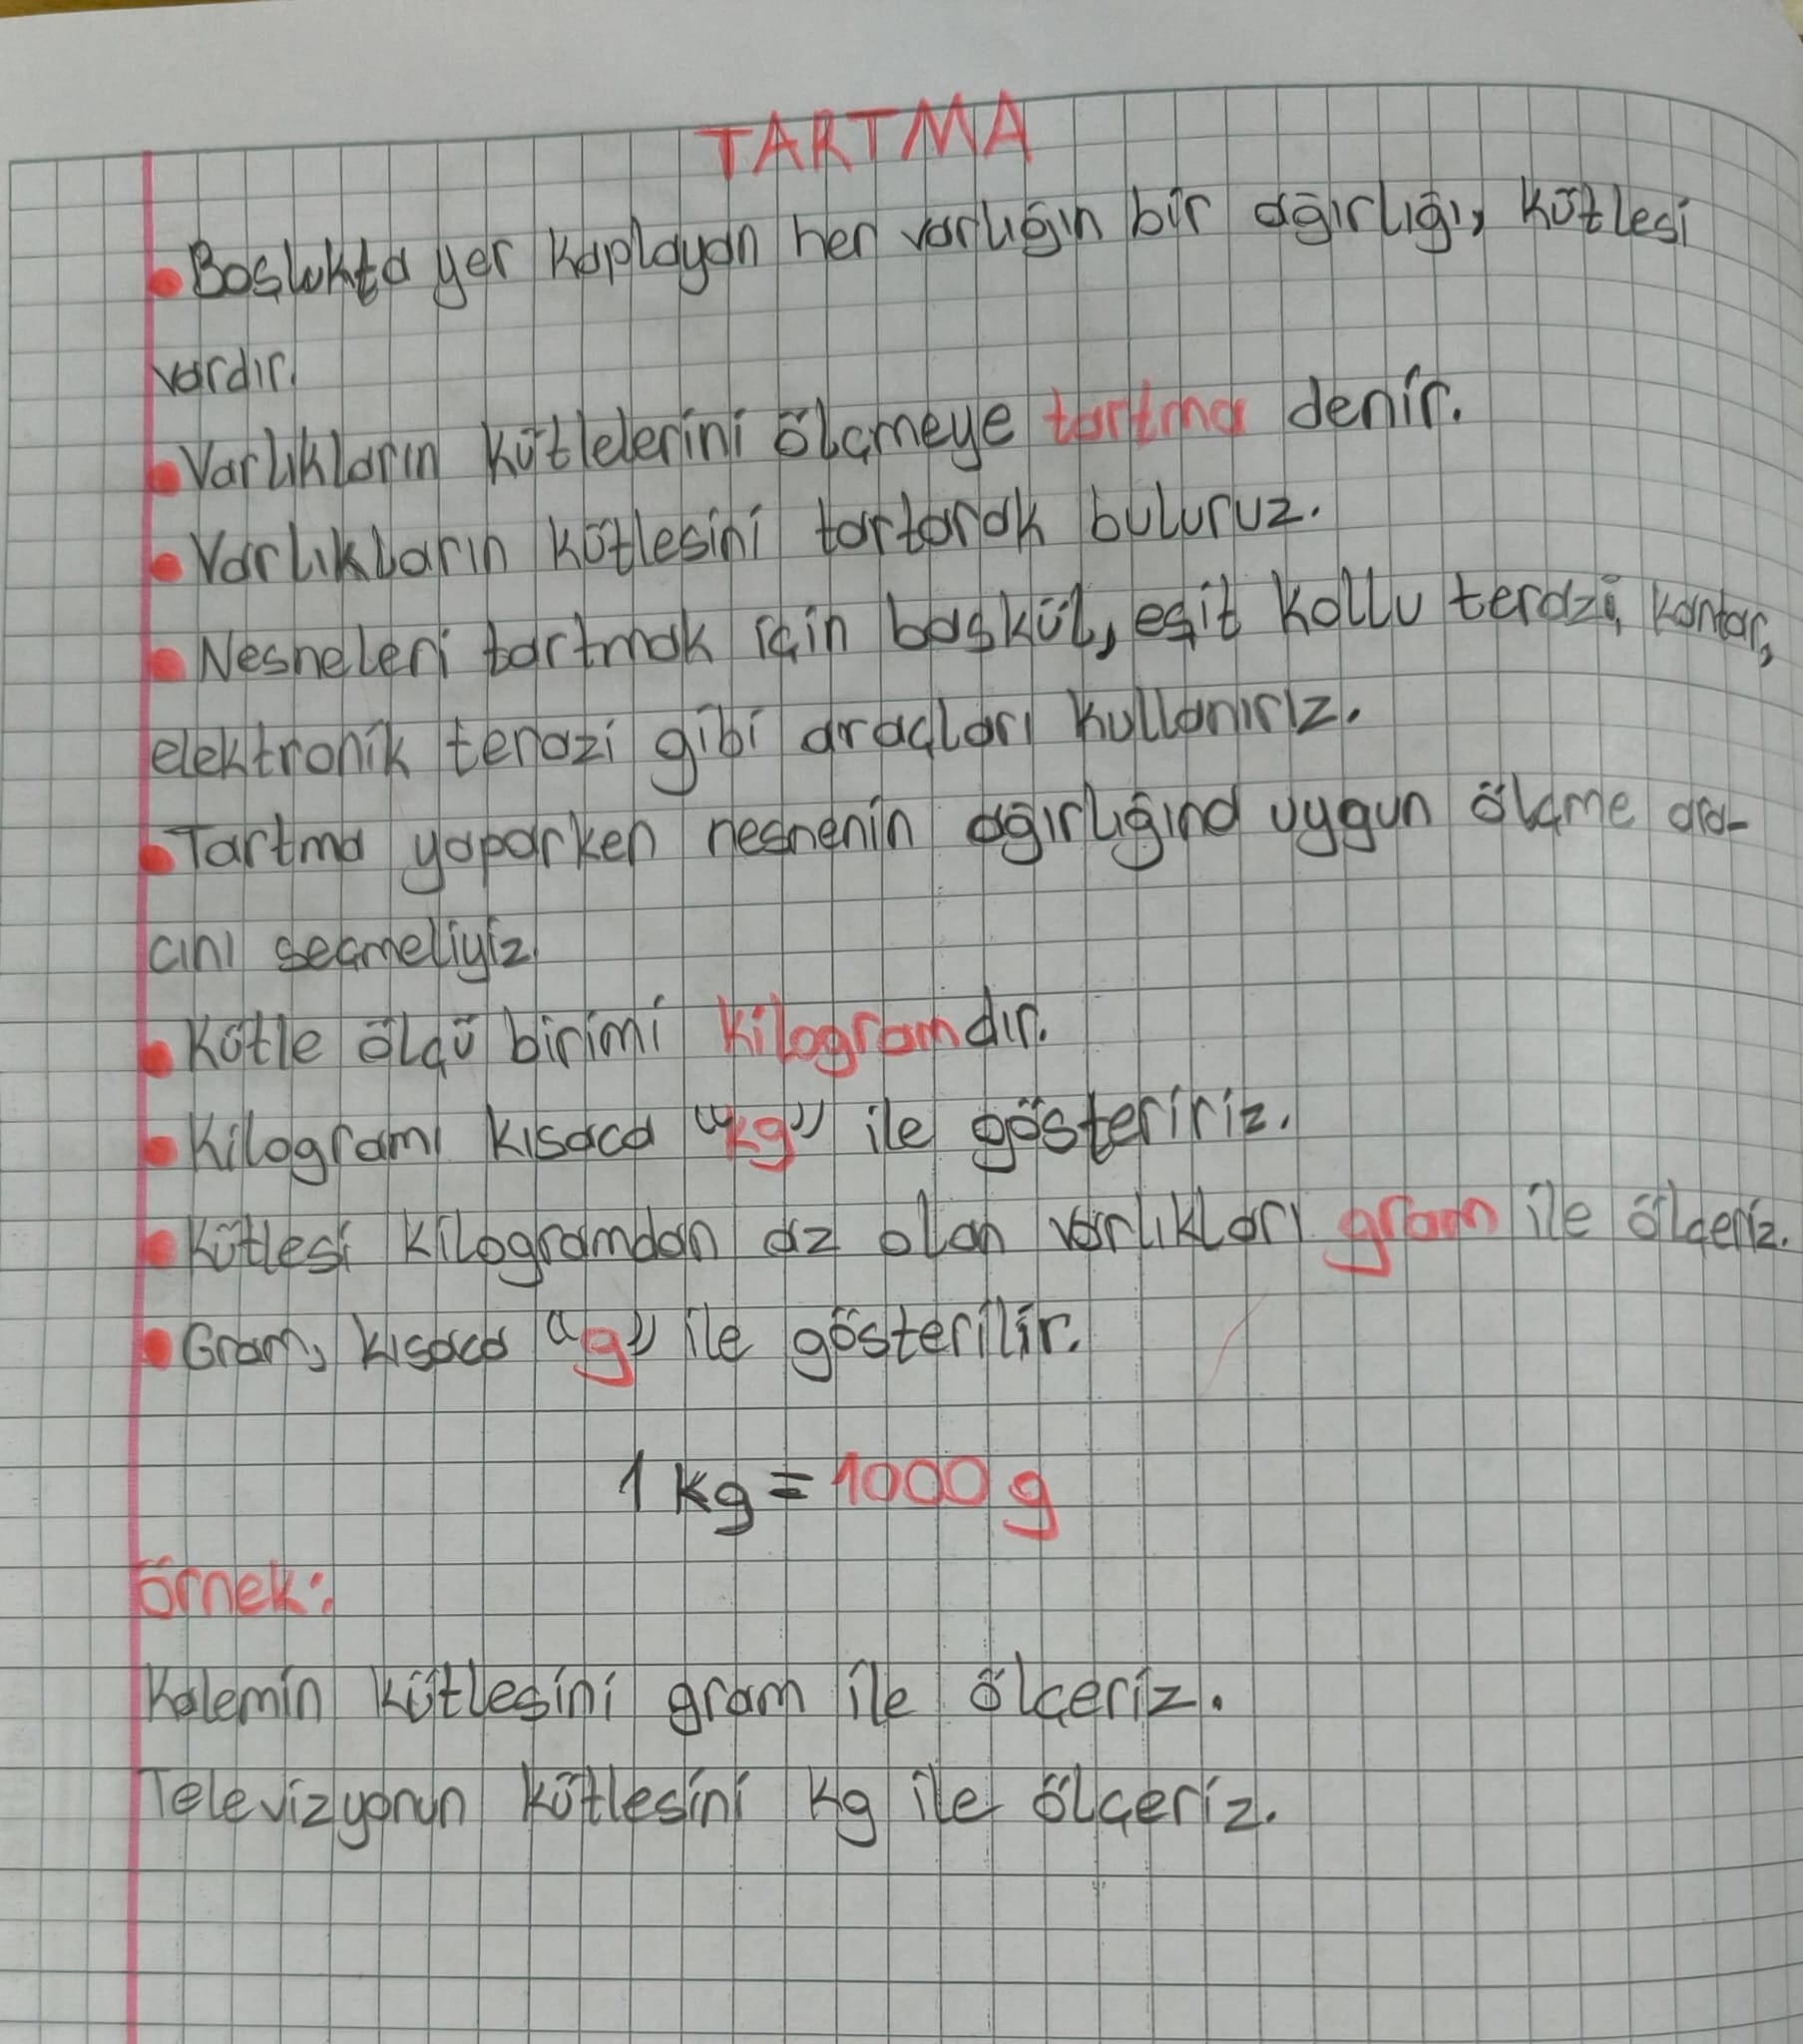 TARTMA
• Boşlukta yer kaplayan her varlığın bir ağırlığı, kütlesi
vardır.
• Varlıkların kütlelerini ölçmeye tartma denir.
• Varlıkların kütlesini tartarak buluruz.
• Nesneleri tartmak için baskül, eşit kollu terazi, kantar,
elektronik terazi gibi araçları kullanırız.
• Tartma yaparken nesnenin ağırlığına uygun ölçme ara-
cını seçmeliyiz.
• Kütle ölçü birimi kilogramdır.
• Kilogramı kısaca "kg" ile gösteririz.
• Kütlesi kilogramdan az olan varlıkları gram ile ölçeriz.
• Gram, kısaca "g" ile gösterilir.
1 kg = 1000 g
Örnek:
Kalemin kütlesini gram ile ölçeriz.
Televizyonun kütlesini kg ile ölçeriz.